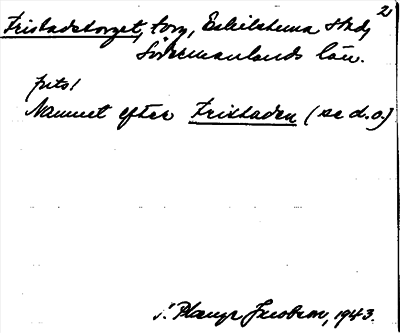 2
Fristadstorget, torg, Eskilstuna stad,
Södermanlands län.
Namnet efter Fristaden (se d.o.)
Jacobson, 1943.